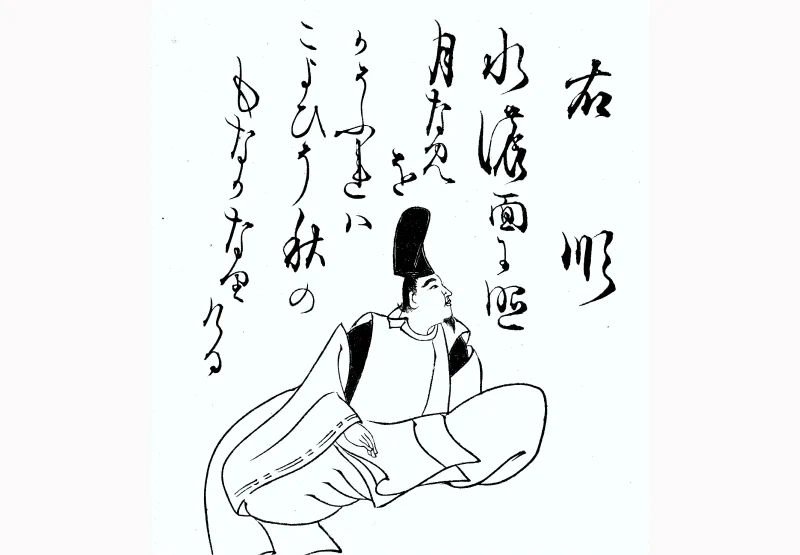 右 順
水濃面に照
月なみを
かそふれハ
こよひそ秋の
もなかな里ける